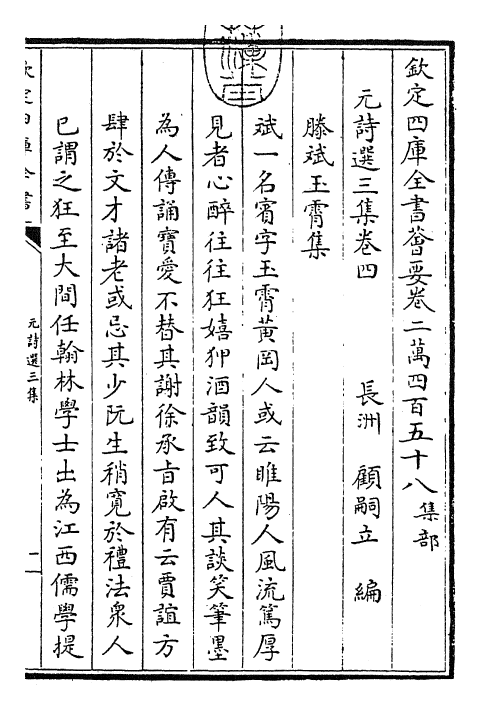 欽定四庫全書薈要卷二萬四百五十八 集部
元詩選三集卷四
長洲 顧嗣立 編
滕斌玉霄集
斌一名賔字玉霄黄岡人或云睢陽人風流篤厚
見者心醉往往狂嬉狎酒韻致可人其談笑筆墨
為人傳誦寶愛不替其謝徐承旨啟有云賈誼方
肆於文才諸老或忌其少阮生稍寛於禮法衆人
已謂之狂至大間任翰林學士出為江西儒學提
欽定四庫全書
元詩選三集